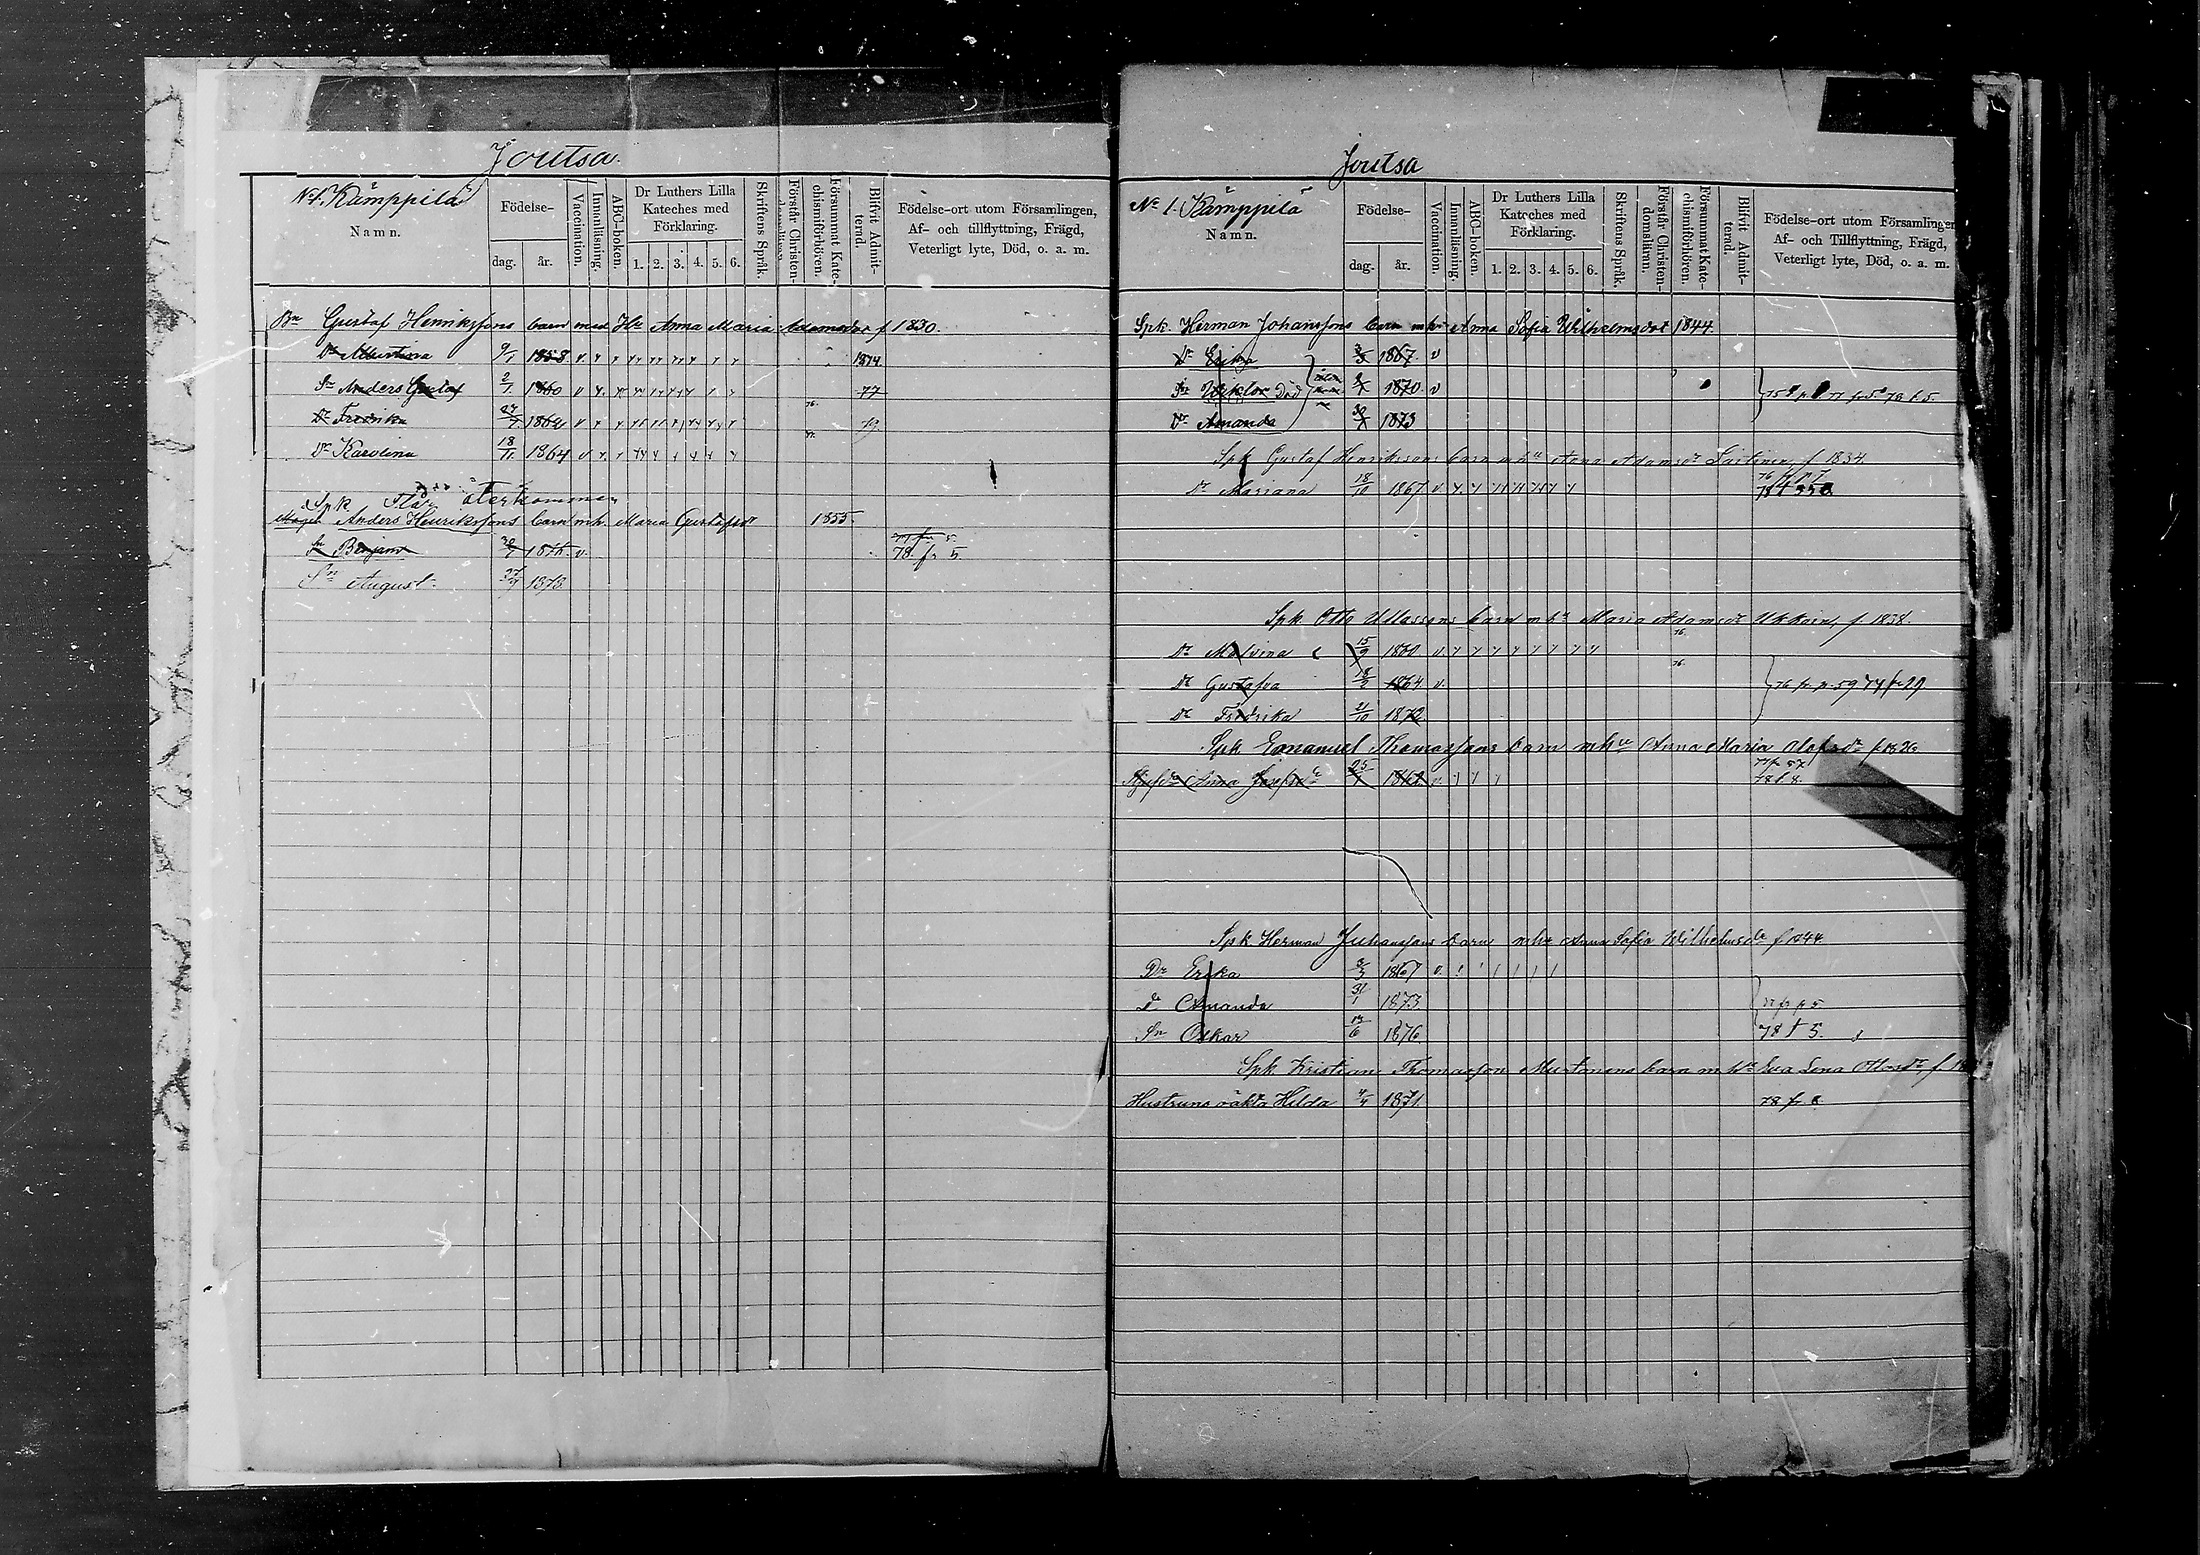 Joutsa.
No 1. Kämppilä
Namn.
Födelse-
dag.
år.
Vaccination.
Innanläsning.
ABC-boken.
Dr Luthers Lilla
Kateches med
Förklaring.
1. 2. 3. 4. 5. 6.
Skriftens Språk.
Förstår Christen-
Försummat Kate-
chismiförhören.
Blifvit Admit-
terad.
Födelse-ort utom Församlingen,
Af- och tillflyttning, Frägd,
Veterligt lyte, Död, o. a. m.
Bn Gustaf Henrikssons barn med Hu Anna Maria Adamsdot f 1830.
Dr Albertina 9/1 1858 v 1874.
Sn Anders Gustaf 2/1 1860 v 77
Dr Fredrika 1862 v 76. 79
Dr Karolina 18/11 1864 v 77.
Spk Flår återkommen
Anders Henrikssons barn mh. Maria Gustafsdr 1855.
Sn Benjam 30/7 1876. v. 77 fr 5.
78. fr 5.
Sn August 27/9 1878
Joutsa
No 1. Kämppilä
Namn.
Födelse-
dag.
år.
Vaccination.
Innanläsning.
ABC-boken.
Dr Luthers Lilla
Kateches med
Förklaring.
1. 2. 3. 4. 5. 6.
Skriftens Språk.
Förstår Christen-
domsläran.
Försummat Kate-
chismiförhören.
Blifvit Admit-
terad.
Födelse-ort utom Församlingen,
Af- och Tillflyttning, Frägd,
Veterligt lyte, Död, o. a. m.
Spk. Herman Johanssons barn mhu Anna Sofia Wilhelmsdot 1844.
Dr Erika 3/3 1867. v
Sn Wiktor Död 1870 v
Dr Amanda 1873
Spk Gustaf Henrikssons barn mhu Anna Adamsdr f 1834.
Dr Mariana 18/10 1867 v.
Spk. Otto Ullassons barn mhu Maria Adamsdr f 1838.
Dr Malvina 15/9 1860 v. 76.
Dr Gustafva 18/2 1864 v. 76. 76 fr p. 59 77 fr 29
Dr Fredrika 21/10 1872
Spk Emanuel Thomassons barn mhu Anna Maria Olofsdr f 1826
Anna Josefsdr 25/1 1862 v. 77 fr 57
78 f 8.
Spk Herman Juhanssons barn mhu Anna Sofia Wilhelmsdr f 1844
Dr Erika 3/3 1867 v.
Dr Amanda 31/1 1873 77 fr p 5
Sn Oskar 13/6 1876 78 f 5.
Spk Kristian Thomasson Murtonens barn m Hu Eva Lena Ottosdr f
Hustruns oäkta Hilda 4/4 1871 78 fr 8